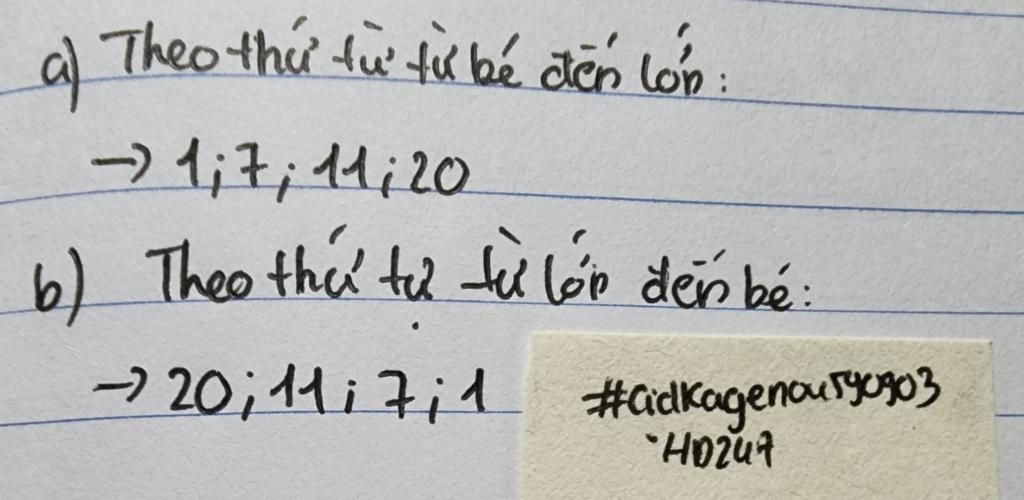 a) Theo thứ từ từ bé đến lớn:
→ 1; 7; 11; 20
b) Theo thứ tự từ lớn đến bé:
→ 20; 11; 7; 1
HD247